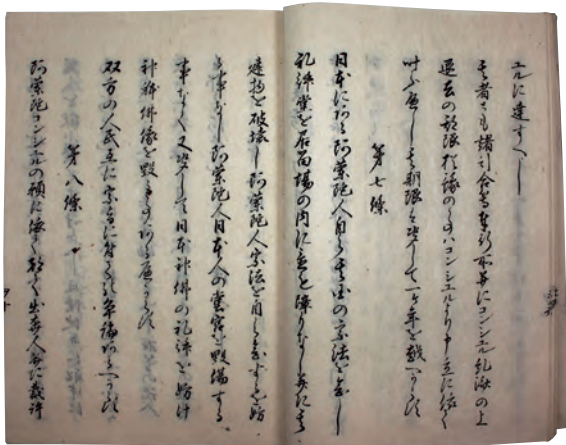 エルに達すへし
其者とも諸引合等奉行所并にコンシユル糺済の上
退去の期限猶豫の儀ハコンシユルより申立に依て
叶ふへし其期限ハ决して一ケ年を越へからす
第七條
日本に在る阿蘭陀人自ら其国の宗法を念し
礼拝堂を居留場の内に置も障りなし并に其
建物を破壊し阿蘭陀人宗法を自ら念するを妨
る事なし阿蘭陀人日本人の堂宮を毀傷する
事なく又决して日本神佛の礼拝を妨け
神躰佛像を毀る事あるへからす
双方の人民互に宗旨に付ての争論あるへからす
第八條
阿蘭陀コンシユルの願に依て都て出奔人并に裁許